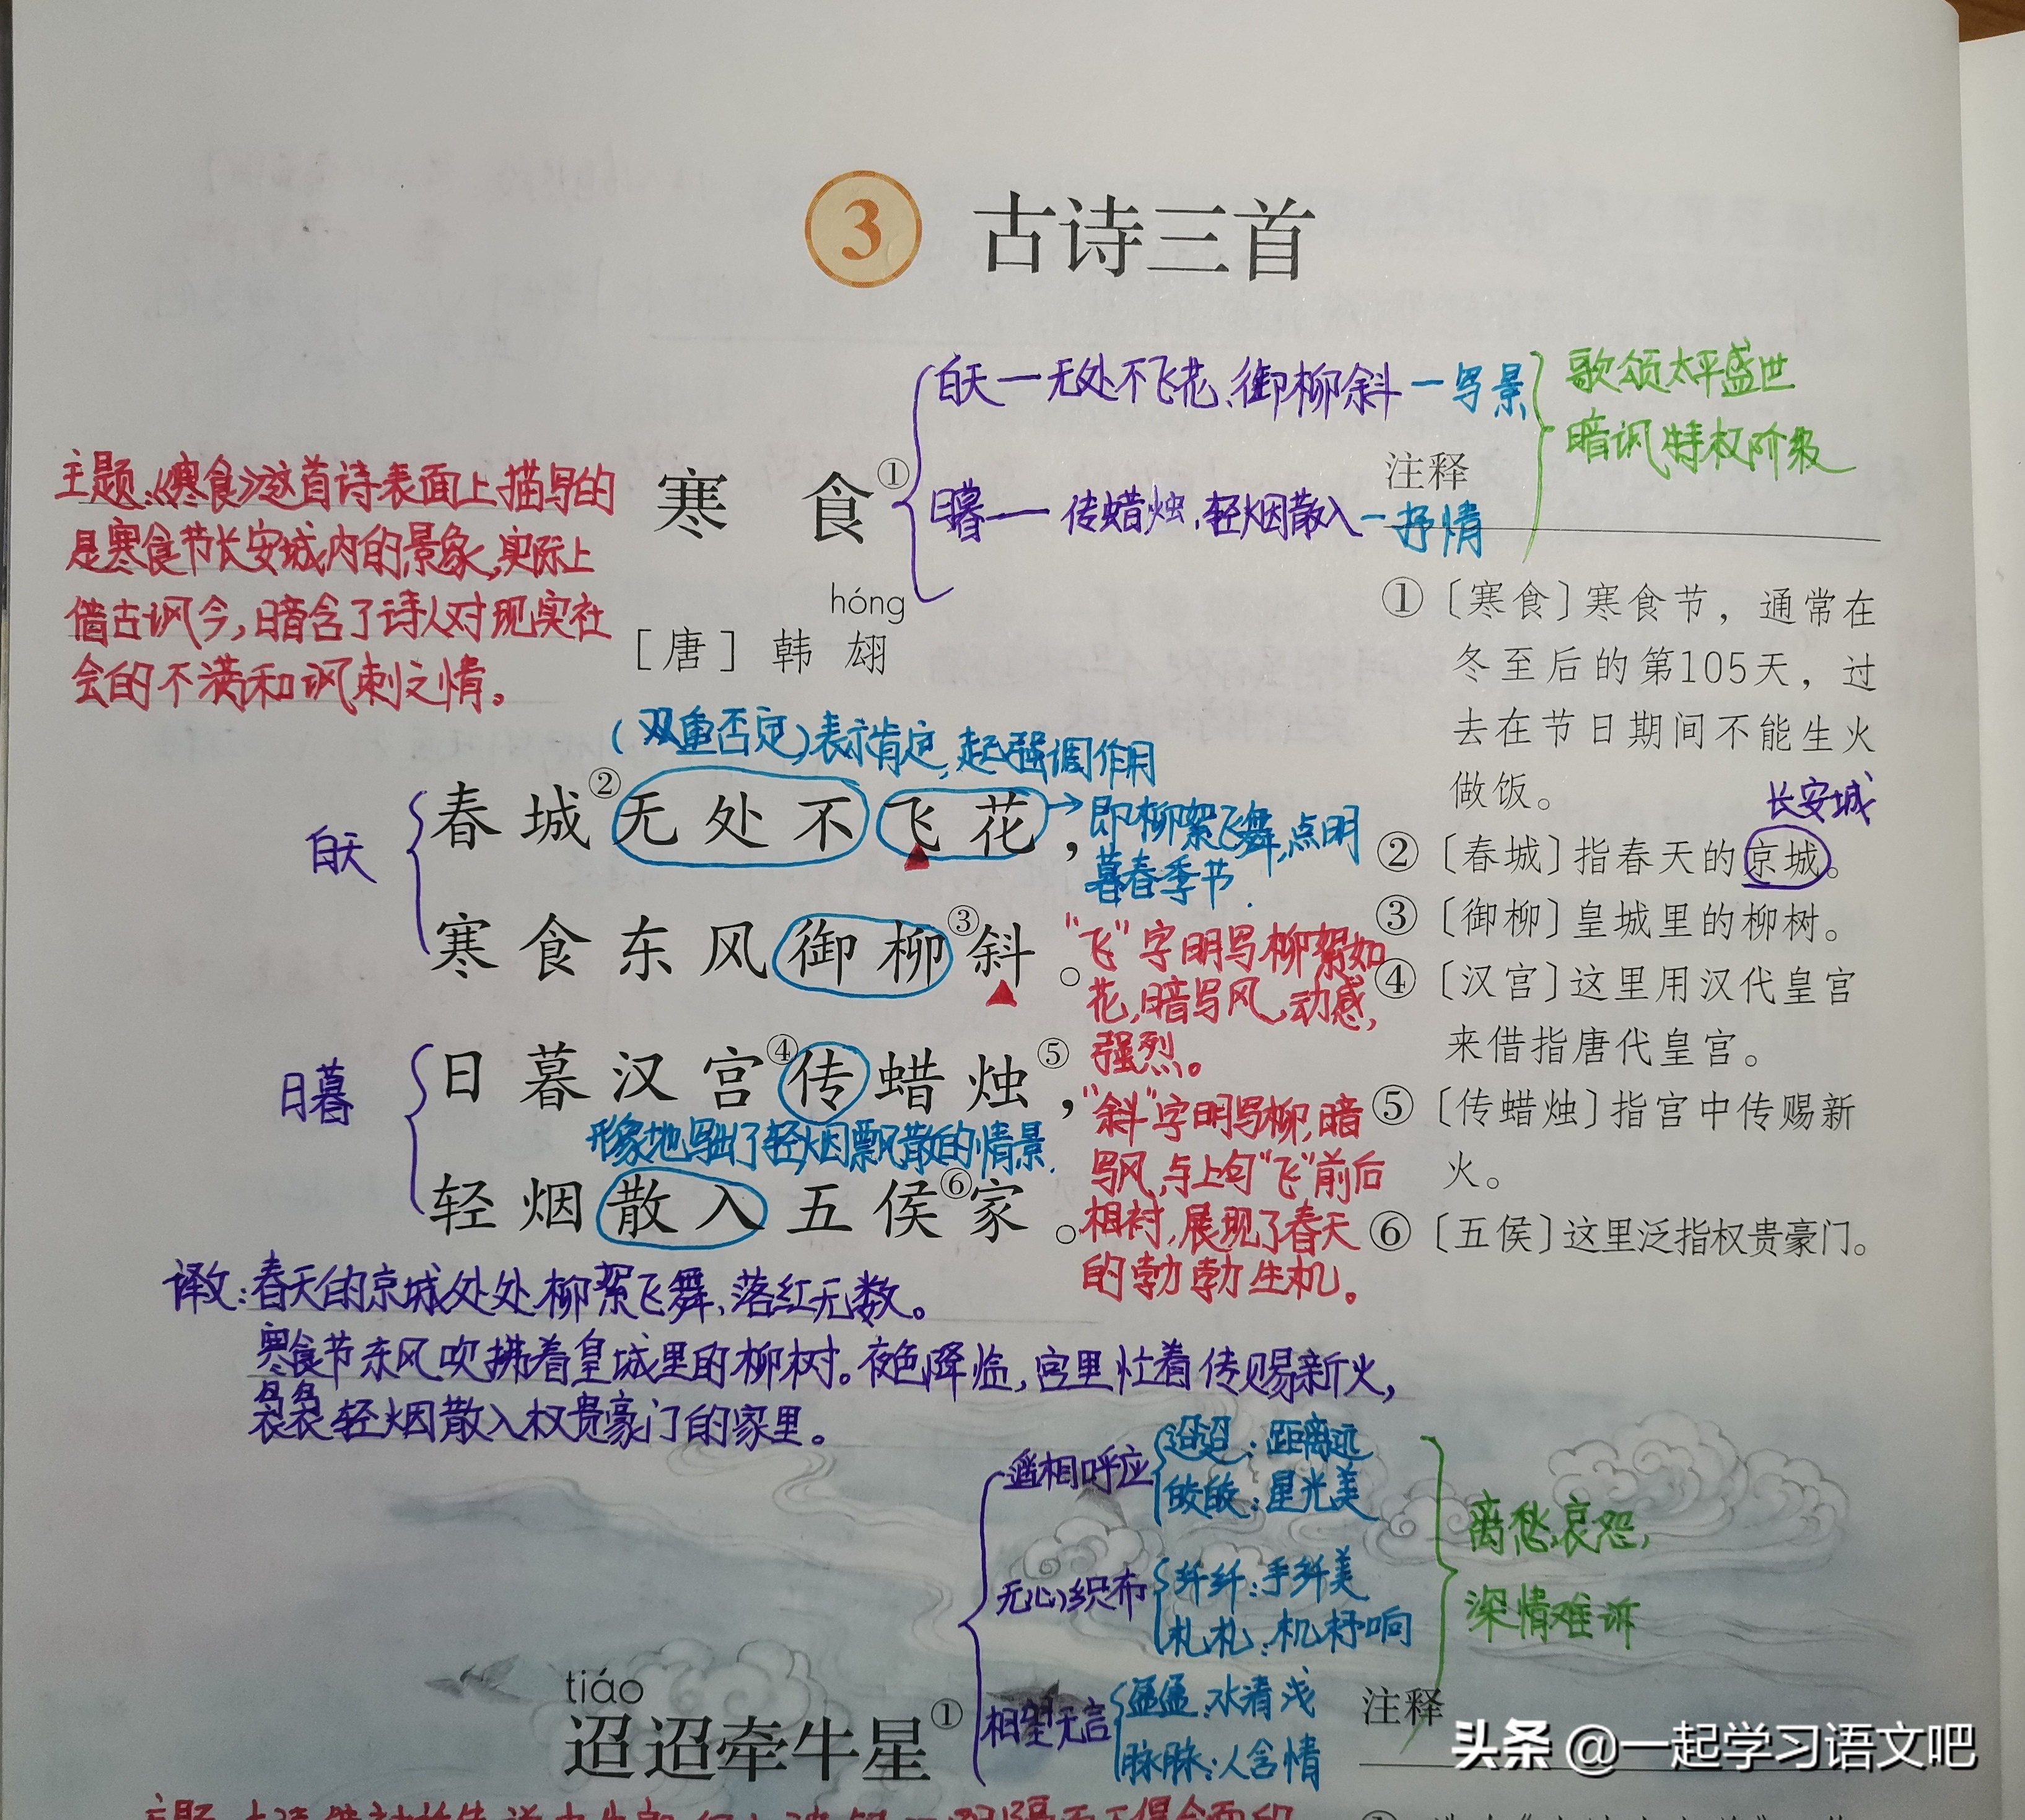 3 古诗三首
白天—无处不飞花、御柳斜—写景
日暮—传蜡烛,轻烟散入—抒情
歌颂太平盛世
暗讽特权阶级
主题:《寒食》这首诗表面上描写的
是寒食节长安城内的景象,实际上
借古讽今,暗含了诗人对现实社
会的不满和讽刺之情。
寒食①
hóng
[唐] 韩翃
(双重否定)表示肯定,起强调作用
白天
春城②无处不飞花,
即柳絮飞舞,点明
暮春季节.
寒食东风御柳③斜。
“飞”字明写柳絮如
花,暗写风,动感
强烈。
日暮
日暮汉宫④传蜡烛⑤,
形象地写出了轻烟飘散的情景.
轻烟散入五侯⑥家。
“斜”字明写柳,暗
写风,与上句“飞”前后
相衬,展现了春天
的勃勃生机。
译文:春天的京城处处柳絮飞舞,落红无数。
寒食节东风吹拂着皇城里的柳树。夜色降临,宫里忙着传赐新火,
袅袅轻烟散入权贵豪门的家里。
注释
①〔寒食〕寒食节,通常在
冬至后的第105天,过
去在节日期间不能生火
做饭。
长安城
②〔春城〕指春天的京城。
③〔御柳〕皇城里的柳树。
④〔汉宫〕这里用汉代皇宫
来借指唐代皇宫。
⑤〔传蜡烛〕指宫中传赐新
火。
⑥〔五侯〕这里泛指权贵豪门。
tiáo
迢迢牵牛星①
遥相呼应
迢迢:距离远
皎皎:星光美
无心织布
纤纤:手纤美
札札:机杼响
相望无言
盈盈:水清浅
脉脉:人含情
离愁哀怨,
深情难诉
注释
头条 @一起学习语文吧